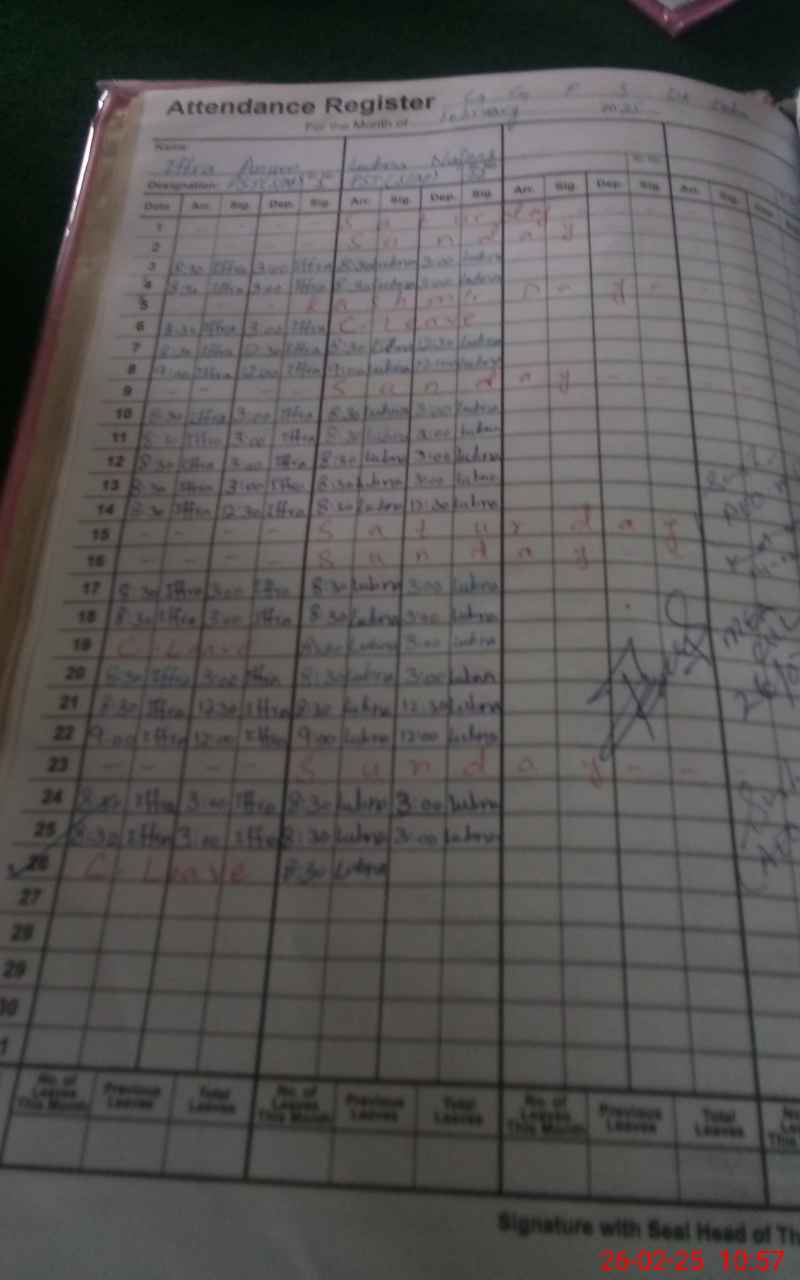 Attendance Register G G P S
For the Month of February 2025
Name
Iffra Lubna
Designation: PST PST
Date Arr. Sig. Dep. Sig. Arr. Sig. Dep. Sig. Arr. Sig. Dep. Sig. Arr. Sig. Dep.
1 - - - - S a t u r d a y - - -
2 - - - - S u n d a y
3 8:30 Iffra 3:00 Iffra 8:30 Lubna 3:00 Lubna
4 8:30 Iffra 3:00 Iffra 8:30 Lubna 3:00 Lubna
5 - - - K a s h m i r D a y - -
6 8:30 Iffra 3:00 Iffra C. Leave
7 8:30 Iffra 12:30 Iffra 8:30 Lubna 12:30 Lubna
8 9:00 Iffra 12:00 Iffra 9:00 Lubna 12:00 Lubna
9 - - - - S u n d a y - - -
10 8:30 Iffra 3:00 Iffra 8:30 Lubna 3:00 Lubna
11 8:30 Iffra 3:00 Iffra 8:30 Lubna 3:00 Lubna
12 8:30 Iffra 3:00 Iffra 8:30 Lubna 3:00 Lubna
13 8:30 Iffra 3:00 Iffra 8:30 Lubna 3:00 Lubna
14 8:30 Iffra 12:30 Iffra 8:30 Lubna 12:30 Lubna
15 - - - - S a t u r d a y
16 - - - - S u n d a y - -
17 8:30 Iffra 3:00 Iffra 8:30 Lubna 3:00 Lubna
18 8:30 Iffra 3:00 Iffra 8:30 Lubna 3:00 Lubna
19 C. Leave 8:30 Lubna 3:00 Lubna
20 8:30 Iffra 3:00 Iffra 8:30 Lubna 3:00 Lubna
21 8:30 Iffra 12:30 Iffra 8:30 Lubna 12:30 Lubna
22 9:00 Iffra 12:00 Iffra 9:00 Lubna 12:00 Lubna
23 - - - - S u n d a y - - -
24 8:30 Iffra 3:00 Iffra 8:30 Lubna 3:00 Lubna
25 8:30 Iffra 3:00 Iffra 8:30 Lubna 3:00 Lubna
26 C. Leave 8:30 Lubna
27
28
29
30
No. of Leaves This Month Previous Leaves Total Leaves No. of Leaves This Month Previous Leaves Total Leaves No. of Leaves This Month Previous Leaves Total Leaves
Signature with Seal Head of
26-02-25 10:57